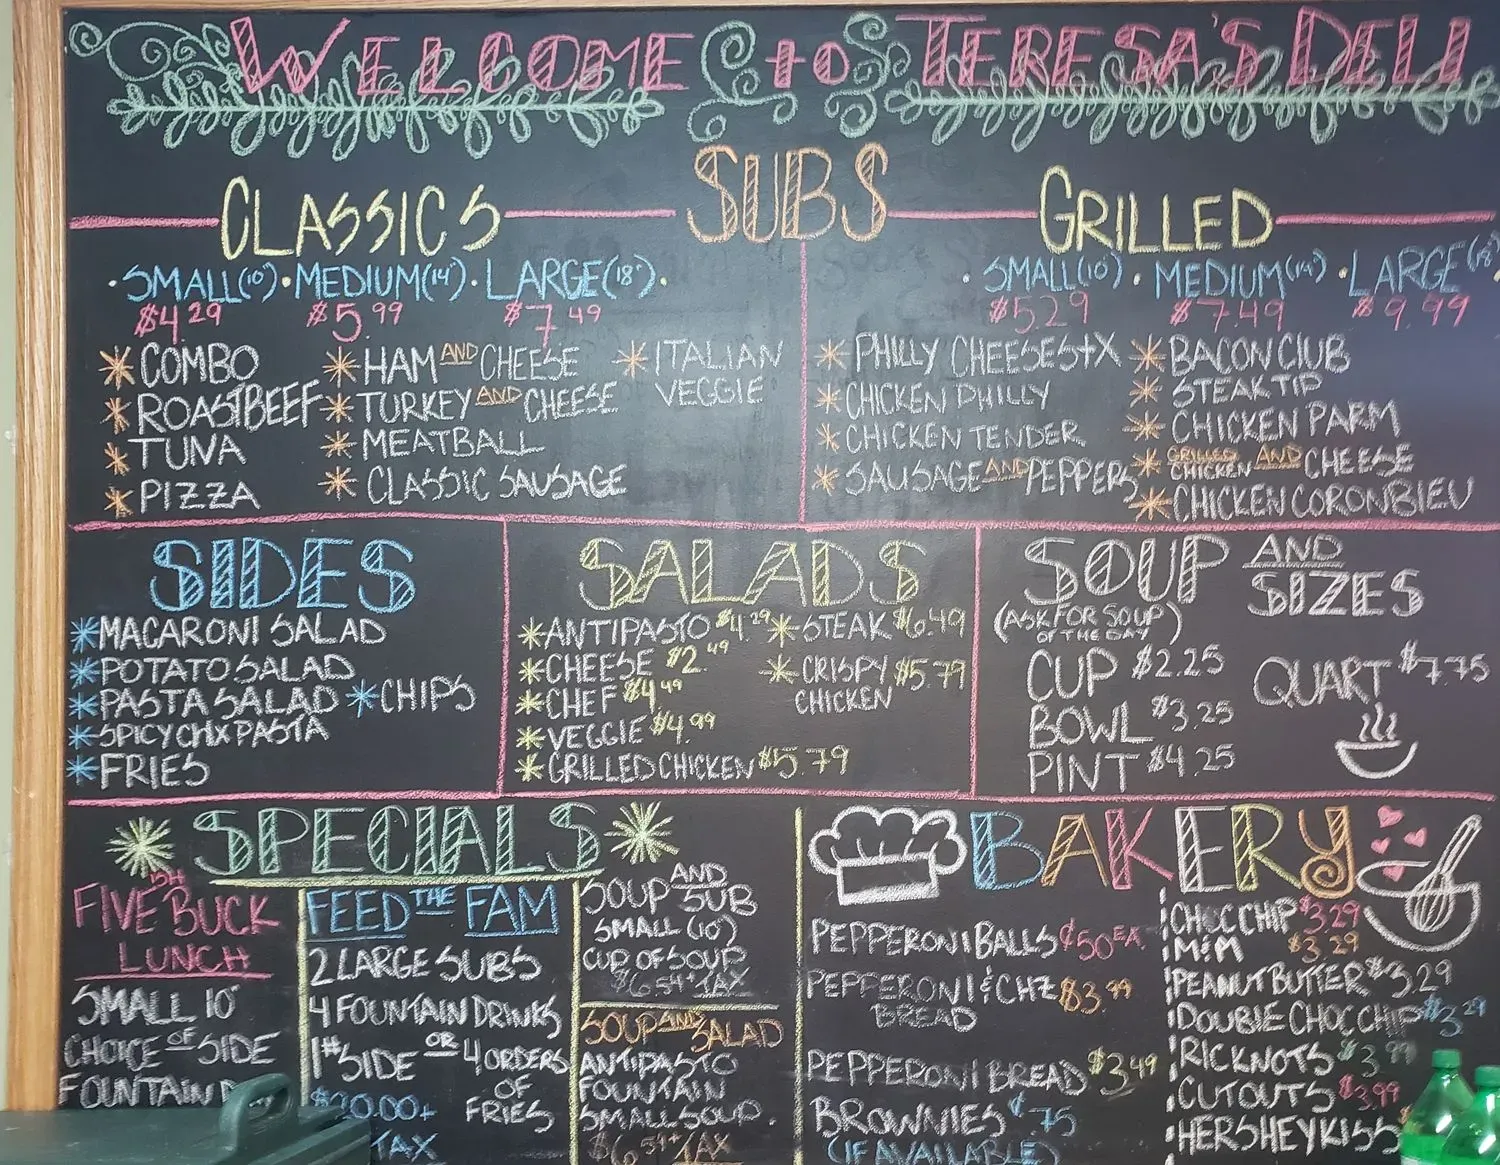 WELCOME to TERESA'S DELI
SUBS
CLASSICS
SMALL(10") · MEDIUM(14") · LARGE(18") ·
$4.29 $5.99 $7.49
COMBO
ROASTBEEF
TUNA
PIZZA
HAM AND CHEESE
TURKEY AND CHEESE
MEATBALL
CLASSIC SAUSAGE
ITALIAN
VEGGIE
GRILLED
· SMALL(10") · MEDIUM(14") · LARGE(18"
$5.29 $7.49 $9.99
PHILLY CHEESESTX
CHICKEN PHILLY
CHICKEN TENDER
SAUSAGE AND PEPPERS
BACON CLUB
STEAK TIP
CHICKEN PARM
GRILLED CHICKEN AND CHEESE
CHICKEN CORONBLEU
SIDES
MACARONI SALAD
POTATO SALAD
PASTA SALAD
SPICY CHX PASTA
FRIES
CHIPS
SALADS
ANTIPASTO $4.29
CHEESE $2.49
CHEF $4.49
VEGGIE $4.99
GRILLED CHICKEN $5.79
STEAK $6.49
CRISPY $5.79
CHICKEN
SOUP AND SIZES
(ASK FOR SOUP
OF THE DAY)
CUP $2.25
BOWL $3.25
PINT $4.25
QUART $7.75
SPECIALS
FIVE BUCK
LUNCH
SMALL 10"
CHOICE OF SIDE
FOUNTAIN
FEED THE FAM
2 LARGE SUBS
4 FOUNTAIN DRINKS
1# SIDE OR 4 ORDERS
OF
FRIES
TAX
SOUP AND SUB
SMALL (10")
CUP OF SOUP
$6.54+TAX
SOUP AND SALAD
ANTIPASTO
FOUNTAIN
SMALL SOUP.
$6.54+TAX
BAKERY
PEPPERONI BALLS ¢50 EA.
PEPPERONI & CHZ $3.99
BREAD
PEPPERONI BREAD $3.49
BROWNIES ¢75
(IF AVAILABLE)
CHOC CHIP $3.29
M&M $3.29
PEANUT BUTTER $3.29
DOUBLE CHOC CHIP $3.29
RICKNOTS $3.99
CUTOUTS $3.99
HERSHEY KISS